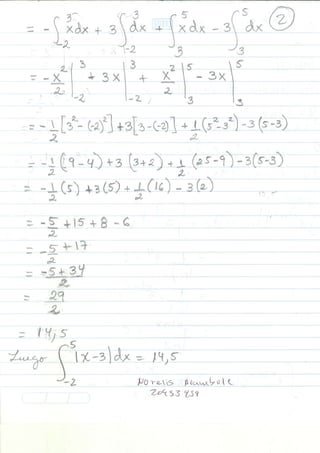 ②
= -∫₋₂³ xdx + 3∫₋₂³ dx + ∫₃⁵ xdx - 3∫₃⁵ dx
= -x²/2 |₋₂³ + 3x |₋₂³ + x²/2 |₃⁵ - 3x |₃⁵
= -1/2 [3²-(-2)²] +3[3-(-2)] + 1/2 (5²-3²) -3(5-3)
= -1/2 (9-4) +3 (3+2) + 1/2 (25-9) -3(5-3)
= -1/2 (5) +3(5) + 1/2 (16) - 3(2)
= -5/2 +15 +8 -6
= -5/2 +17
= (-5+34)/2
= 29/2
= 14,5
Luego ∫₋₂⁵ |x-3|dx = 14,5